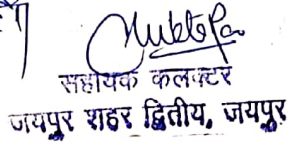 सहायक कलक्टर
जयपुर शहर द्वितीय, जयपुर